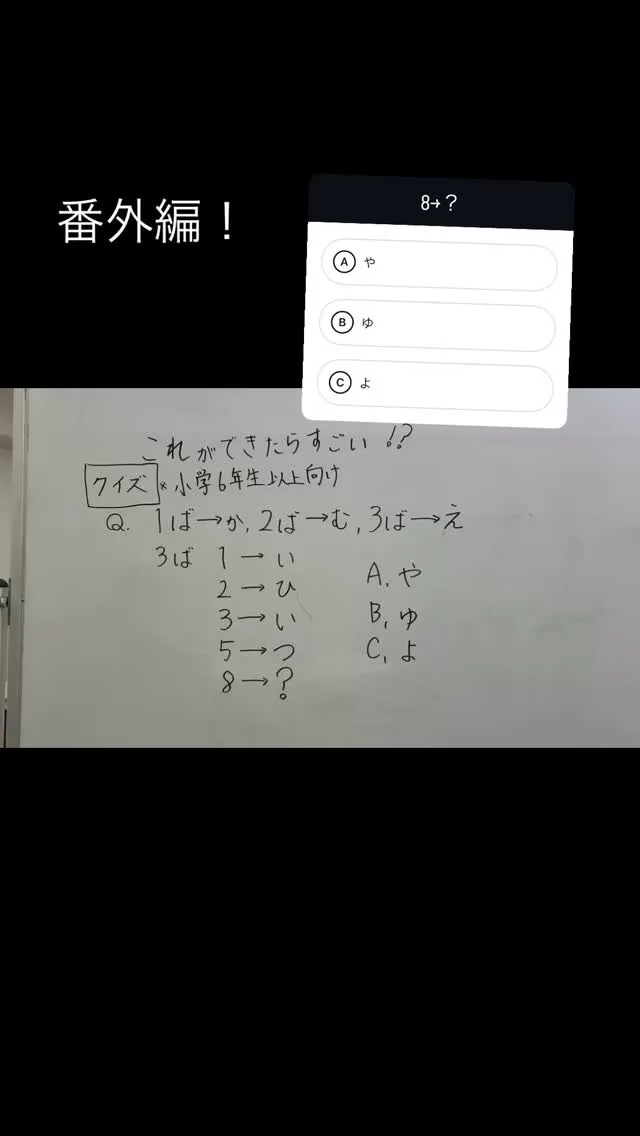 番外編！
8→？
A や
B ゆ
C よ
これができたらすごい!?
クイズ *小学6年生以上向け
Q. 1ば→か, 2ば→む, 3ば→え
3ば 1→い
2→ひ
3→い
5→つ
8→?
A, や
B, ゆ
C, よ